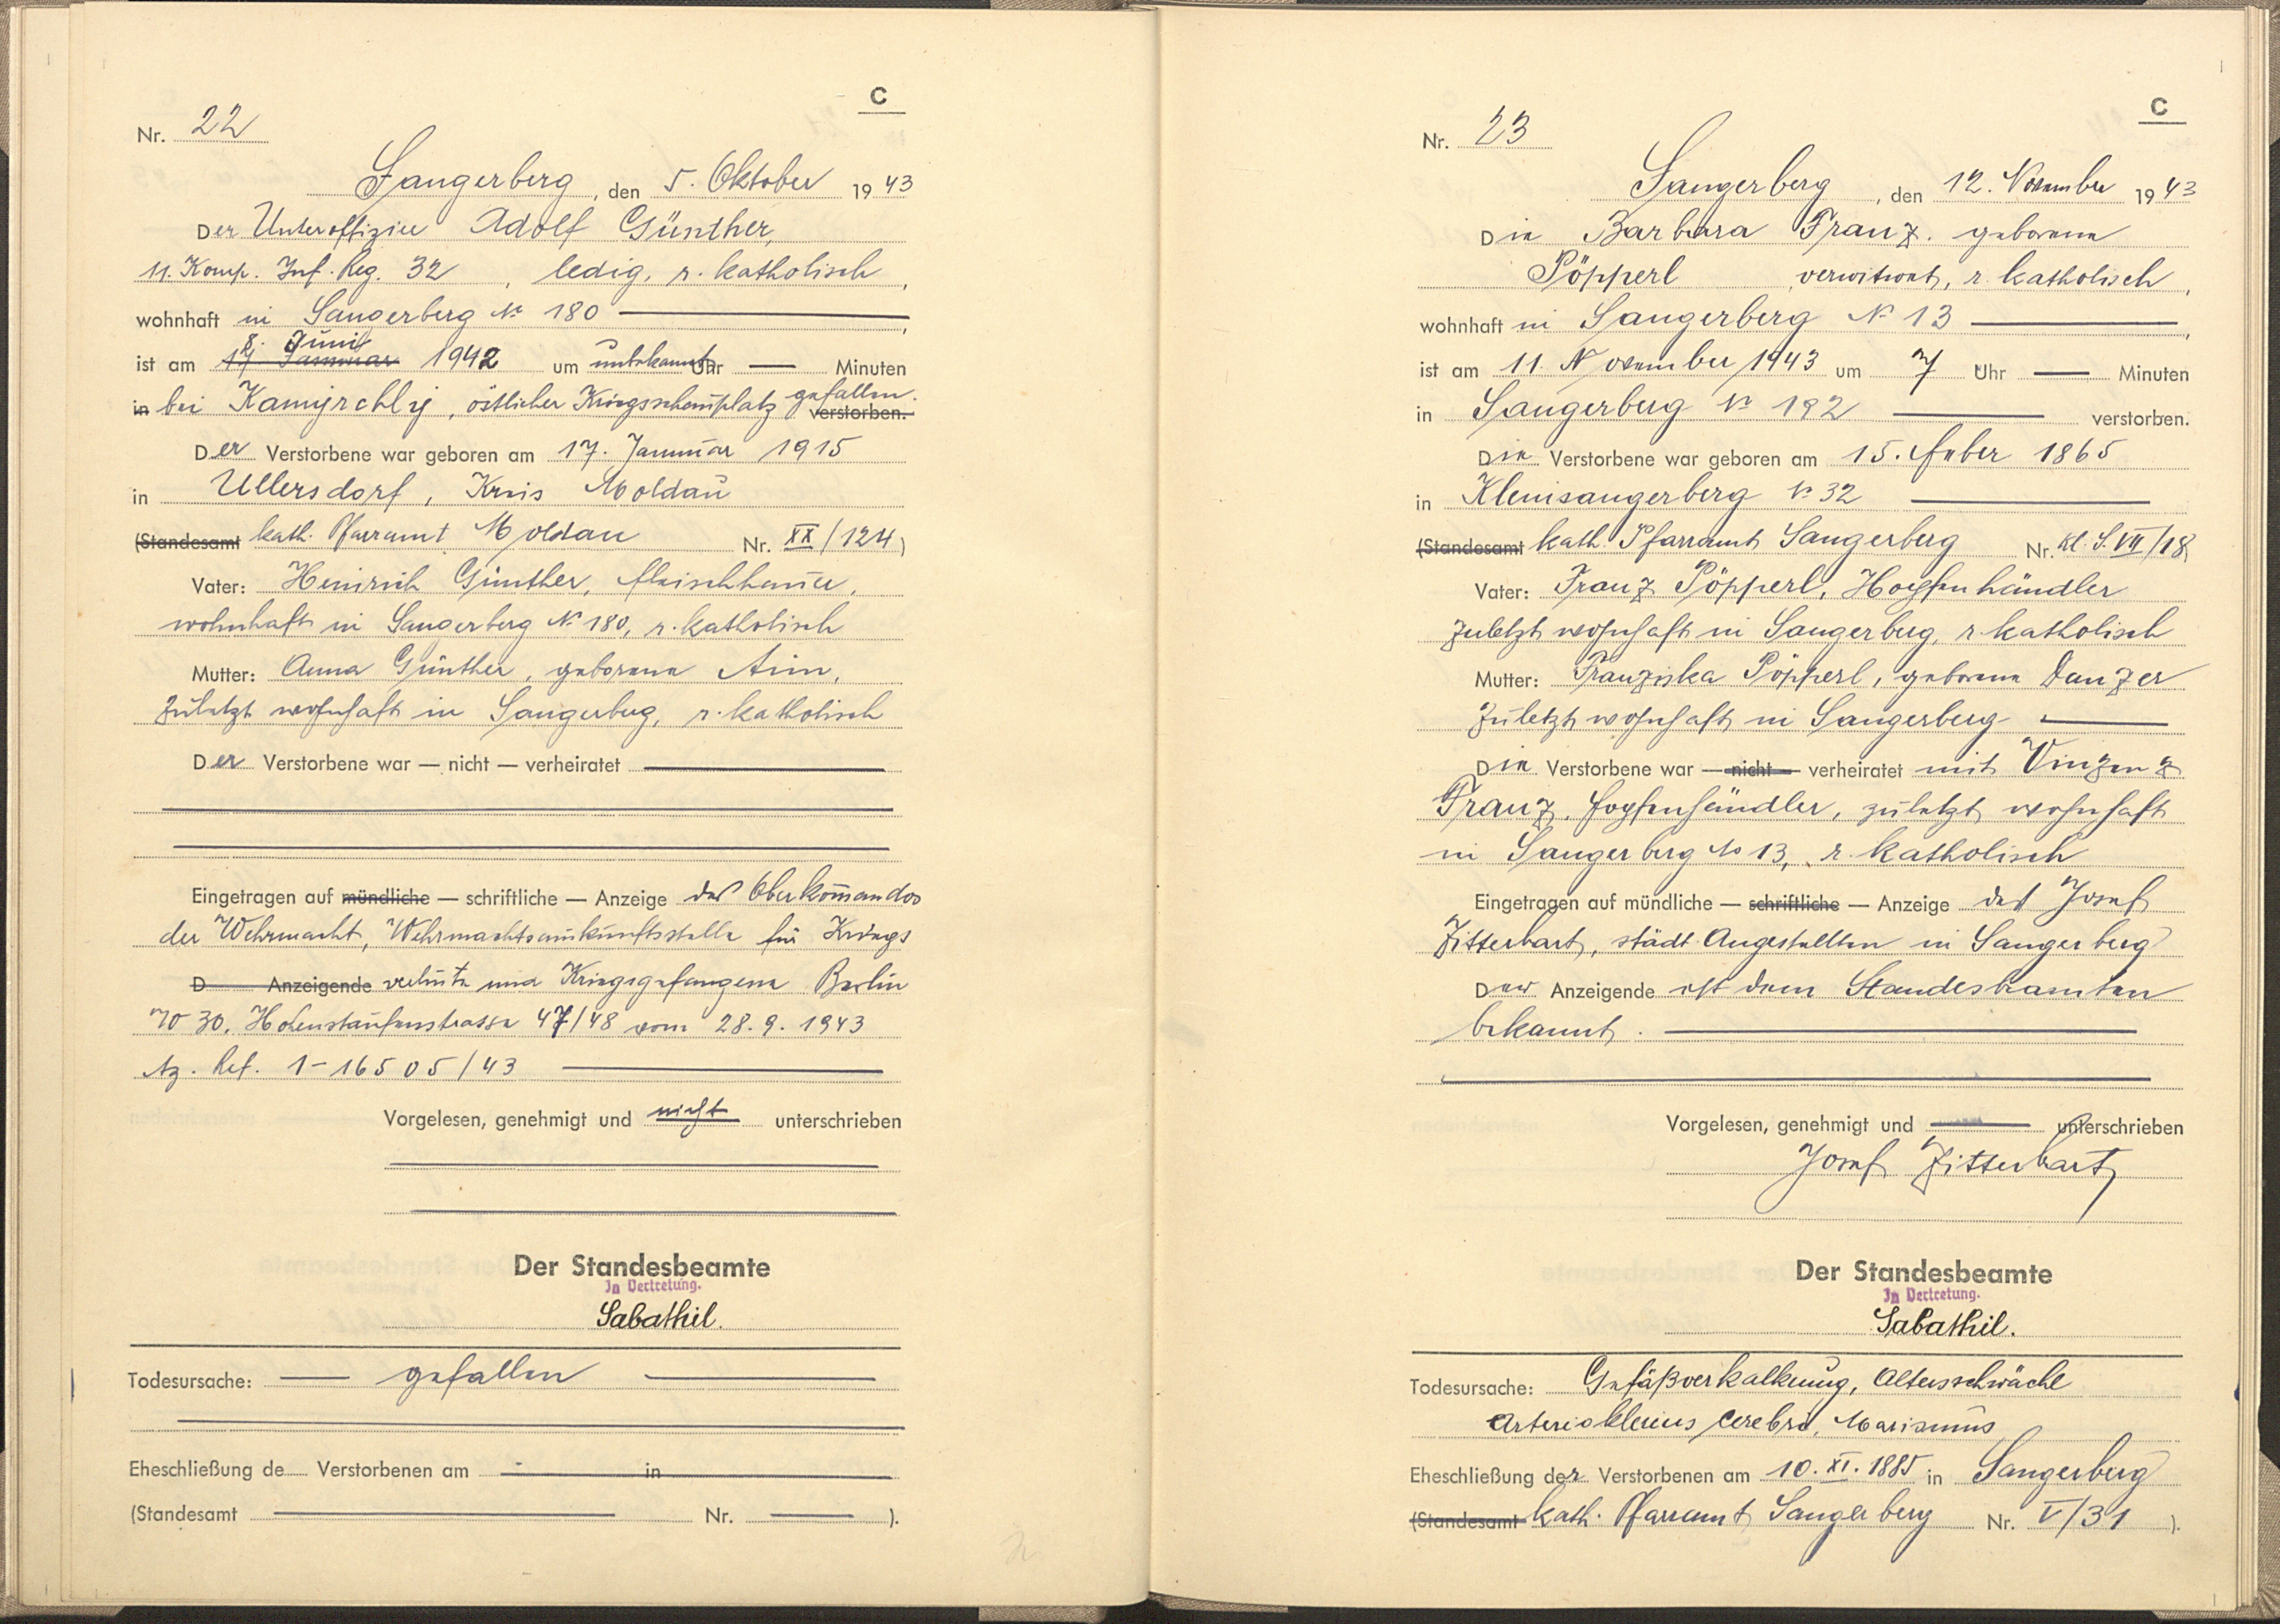 C
Nr. 22
Sangerberg, den 5. Oktober 1943
Der Unteroffizier Adolf Günther,
11. Komp. Inf. Reg. 32, ledig, r. katholisch,
wohnhaft in Sangerberg № 180
8. Juni
ist am 17. Januar 1942 um unbekannt Uhr — Minuten
gefallen.
in bei, östlicher Kriegsschauplatz verstorben.
Der Verstorbene war geboren am 17. Januar 1915
in Ullersdorf, Kreis Moldau
(Standesamt kath. Pfarramt Moldau Nr. XX/124)
Vater: Heinrich Günther, Fleischhauer,
wohnhaft in Sangerberg № 180, r. katholisch
Mutter: Anna Günther, geborene
zuletzt wohnhaft in Sangerberg, r. katholisch
Der Verstorbene war — nicht — verheiratet
Eingetragen auf mündliche — schriftliche — Anzeige des Oberkommandos
der Wehrmacht, Wehrmachtsauskunftsstelle für Kriegs
D Anzeigende verluste und Kriegsgefangene Berlin
W 30, Hohenstaufenstrasse 47/48 vom 28.9.1943
Az. Ref. 1-16505/43
Vorgelesen, genehmigt und nicht unterschrieben
Der Standesbeamte
In Vertretung.
Sabathil.
Todesursache: — gefallen —
Eheschließung de Verstorbenen am — in —
(Standesamt — Nr. — ).
C
Nr. 23
Sangerberg, den 12. November 1943
Die Barbara Franz. geborene
Pöpperl verwitwet, r. katholisch,
wohnhaft in Sangerberg № 13
ist am 11. November 1943 um 7 Uhr — Minuten
in Sangerberg № 192 verstorben.
Die Verstorbene war geboren am 15. 1865
in Kleinsangerberg № 32
(Standesamt kath. Pfarramt Sangerberg Nr. Kl. S. VII/18)
Vater: Franz Pöpperl, Hopfenhändler
zuletzt wohnhaft in Sangerberg, r. katholisch
Mutter: Franziska Pöpperl, geborene Danzer
zuletzt wohnhaft in Sangerberg
Die Verstorbene war — nicht — verheiratet mit Vinzenz
Franz, Hopfenhändler, zuletzt wohnhaft
in Sangerberg № 13, r. katholisch
Eingetragen auf mündliche — schriftliche — Anzeige des Josef
Zitterbart, städt. Angestellten in Sangerberg
Der Anzeigende ist dem Standesbeamten
bekannt.
Vorgelesen, genehmigt und — unterschrieben
Josef Zitterbart
Der Standesbeamte
In Vertretung.
Sabathil.
Todesursache: Gefäßverkalkung, Altersschwäche
cerebri,
Eheschließung der Verstorbenen am 10. XI. 1885 in Sangerberg
(Standesamt kath. Pfarramt Sangerberg Nr. V/31 ).